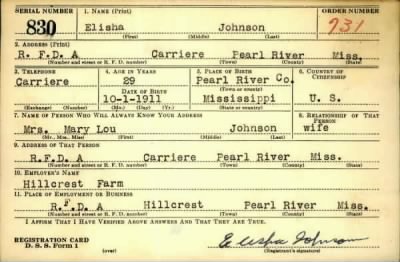 SERIAL NUMBER 1. NAME (Print) ORDER NUMBER
830 Elisha Johnson 731
(First) (Middle) (Last)
2. ADDRESS (Print)
R. F.D. A Carriere Pearl River Miss.
(Number and street or R. F. D. number) (Town) (County) (State)
3. TELEPHONE 4. AGE IN YEARS 5. PLACE OF BIRTH 6. COUNTRY OF CITIZENSHIP
Carriere 29 Pearl River Co.
DATE OF BIRTH (Town or county)
10-1-1911 Mississippi U. S.
(Exchange) (Number) (Mo.) (Day) (Yr.) (State or country)
7. NAME OF PERSON WHO WILL ALWAYS KNOW YOUR ADDRESS 8. RELATIONSHIP OF THAT PERSON
Mrs. Mary Lou Johnson wife
(Mr., Mrs., Miss) (First) (Middle) (Last)
9. ADDRESS OF THAT PERSON
R.F.D. A Carriere Pearl River Miss.
(Number and street or R. F. D. number) (Town) (County) (State)
10. EMPLOYER'S NAME
Hillcrest Farm
11. PLACE OF EMPLOYMENT OR BUSINESS
R.F.D. A Hillcrest Pearl River Miss.
(Number and street or R. F. D. number) (Town) (County) (State)
I AFFIRM THAT I HAVE VERIFIED ABOVE ANSWERS AND THAT THEY ARE TRUE.
REGISTRATION CARD
D. S. S. Form 1 (over) Elisha Johnson
(Registrant's signature)